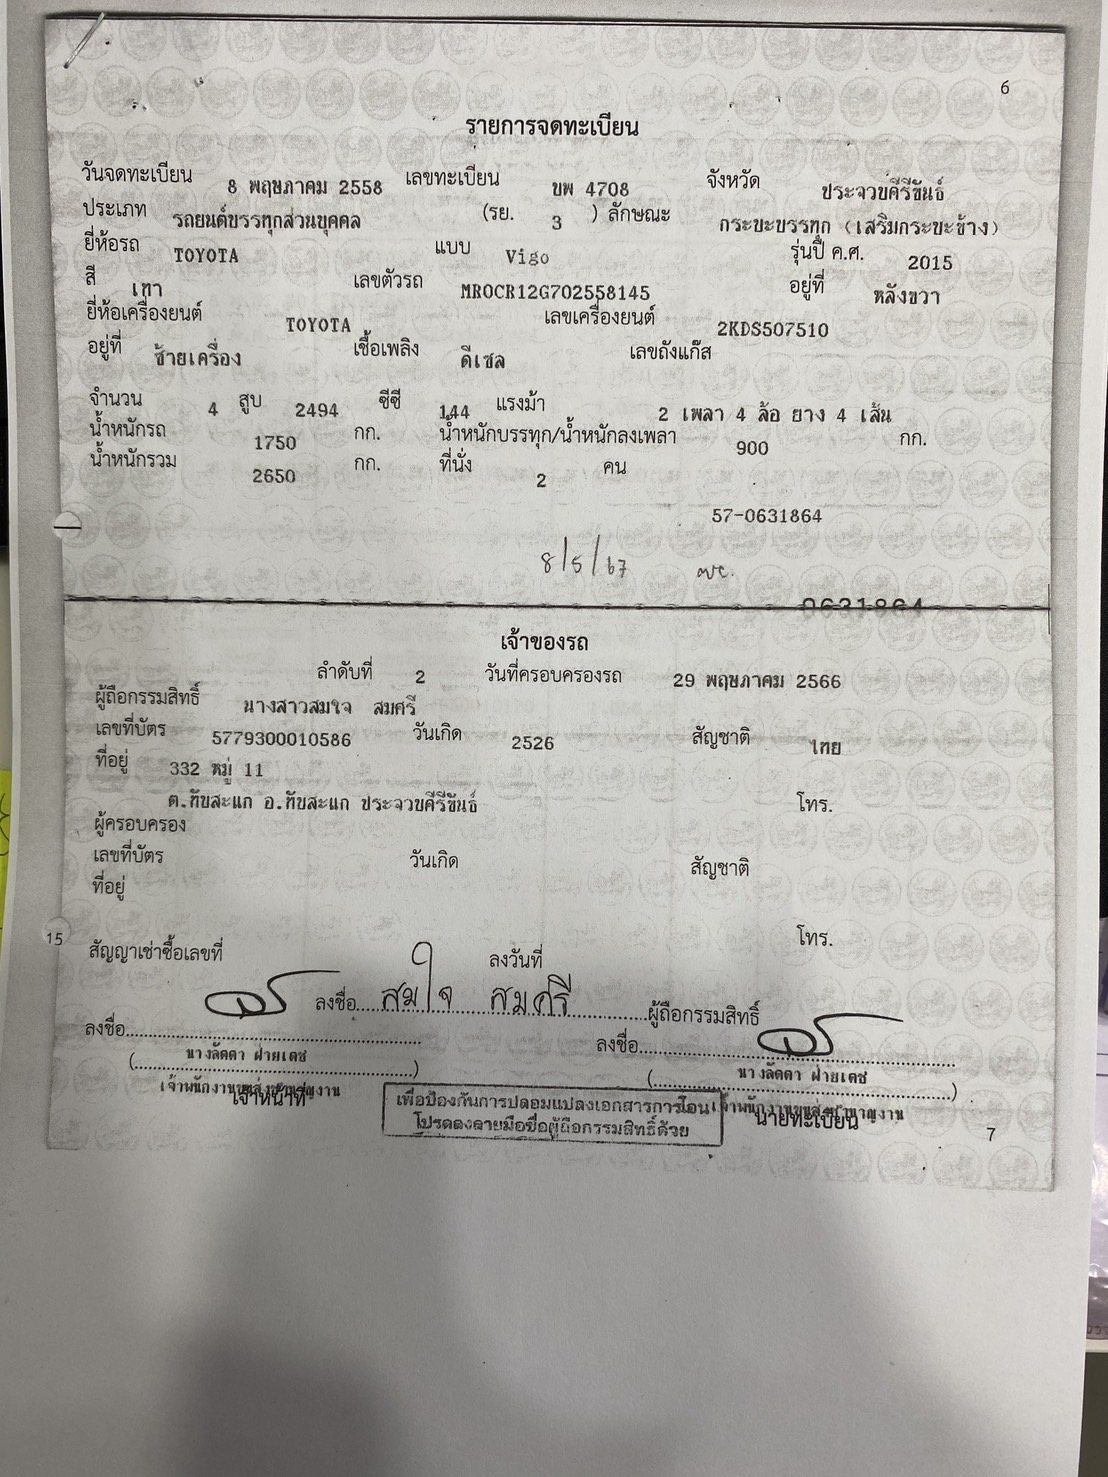 6
รายการจดทะเบียน
วันจดทะเบียน 8 พฤษภาคม 2558 เลขทะเบียน ขพ 4708 จังหวัด ประจวบคีรีขันธ์
ประเภท รถยนต์บรรทุกส่วนบุคคล (รย. 3 ) ลักษณะ กระบะบรรทุก (เสริมกระบะข้าง)
ยี่ห้อรถ TOYOTA แบบ Vigo รุ่นปี ค.ศ. 2015
สี เทา เลขตัวรถ MROCR12G702558145 อยู่ที่ หลังขวา
ยี่ห้อเครื่องยนต์ TOYOTA เลขเครื่องยนต์ 2KDS507510
อยู่ที่ ซ้ายเครื่อง เชื้อเพลิง ดีเซล เลขถังแก๊ส
จำนวน 4 สูบ 2494 ซีซี 144 แรงม้า 2 เพลา 4 ล้อ ยาง 4 เส้น
น้ำหนักรถ 1750 กก. น้ำหนักบรรทุก/น้ำหนักลงเพลา 900 กก.
น้ำหนักรวม 2650 กก. ที่นั่ง 2 คน
57-0631864
8/5/67
0631864
เจ้าของรถ
ลำดับที่ 2 วันที่ครอบครองรถ 29 พฤษภาคม 2566
ผู้ถือกรรมสิทธิ์ นางสาวสมใจ สมศรี
เลขที่บัตร 5779300010586 วันเกิด 2526 สัญชาติ ไทย
ที่อยู่ 332 หมู่ 11
ต.ทับสะแก อ.ทับสะแก ประจวบคีรีขันธ์ โทร.
ผู้ครอบครอง
เลขที่บัตร วันเกิด สัญชาติ
ที่อยู่
15 โทร.
สัญญาเช่าซื้อเลขที่ ลงวันที่
ลงชื่อ สมใจ สมศรี ผู้ถือกรรมสิทธิ์
ลงชื่อ ลงชื่อ
(นางลัดดา ฝ่ายเดช) (นางลัดดา ฝ่ายเดช)
เจ้าพนักงานขนส่งชำนาญงาน เจ้าพนักงานขนส่งชำนาญงาน
เจ้าหน้าที่ นายทะเบียน
เพื่อป้องกันการปลอมแปลงเอกสารการโอน
โปรดลงลายมือชื่อผู้ถือกรรมสิทธิ์ด้วย
7